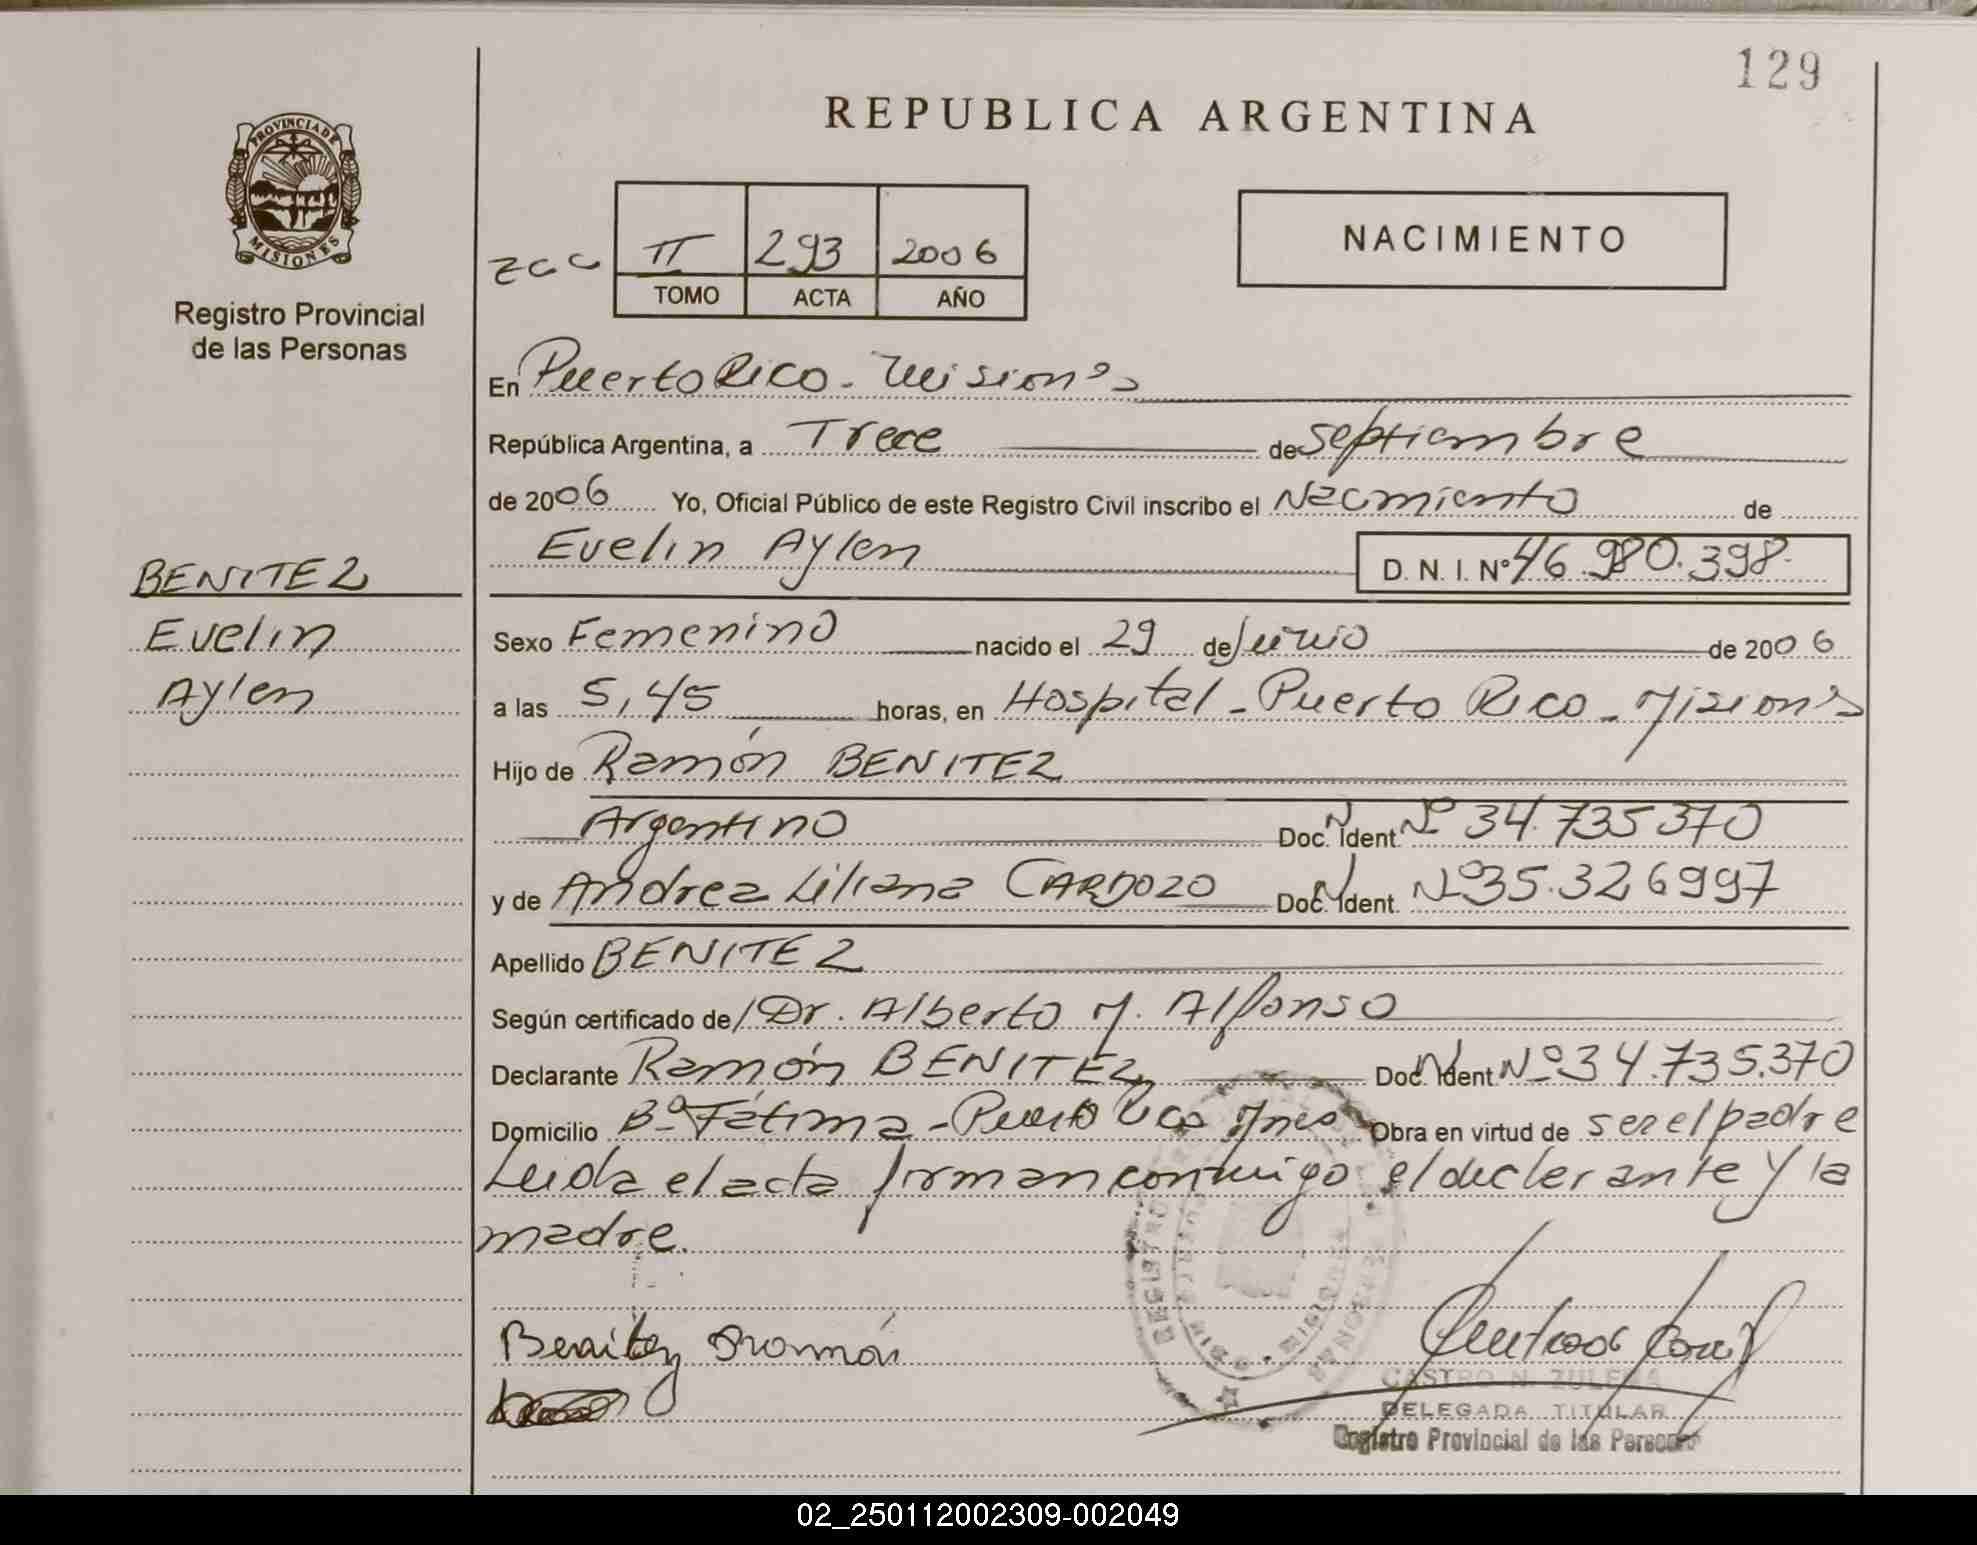 129
REPUBLICA ARGENTINA
PROVINCIA DE
MISIONES
Registro Provincial
de las Personas
II 293 2006
TOMO ACTA AÑO
NACIMIENTO
En Puerto Rico - Mision's
República Argentina, a Trece de septiembre
de 2006 Yo, Oficial Público de este Registro Civil inscribo el Nacimiento de
Evelin Aylen D. N. I. Nº 46.980.398
BENITEZ
Evelin
Aylen
Sexo Femenino nacido el 29 de Junio de 2006
a las 5,45 horas, en Hospital - Puerto Rico - Mision's
Hijo de Ramón BENITEZ
Argentino Doc. N. Ident. Nº 34.735370
y de Andrea Liliana CARDOZO Doc. N. Ident. Nº 35.326997
Apellido BENITEZ
Según certificado de/ Dr. Alberto M. Alfonso
Declarante Ramón BENITEZ Doc. N. Ident. Nº 34.735.370
Domicilio Bº Fátima - Puerto Rico Mnes Obra en virtud de ser el padre
Leida el acta firman conmigo el declarante y la
madre.
Benitez Ramón
CASTRO N. ZULEMA
DELEGADA TITULAR
Registro Provincial de las Personas
02_250112002309-002049